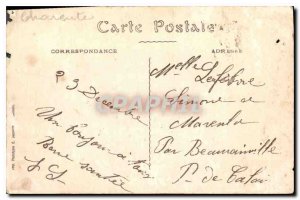 Charente
Carte Postale
CORRESPONDANCE
ADRESSE
P 3 Décembre
Un bonjour à tous
Bonne santée
Melle Lefebvre
Simone de
Marenla
Par Beaurainville
Ps de Calai